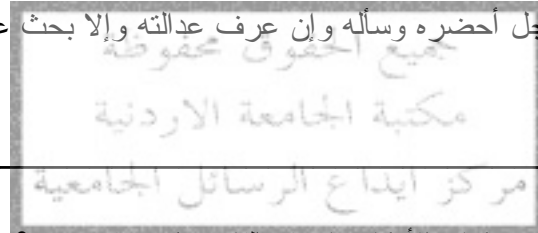 جل أحضره وسأله وإن عرف عدالته وإلا بحث
جميع الحقوق محفوظة
مكتبة الجامعة الاردنية
مركز ايداع الرسائل الجامعية